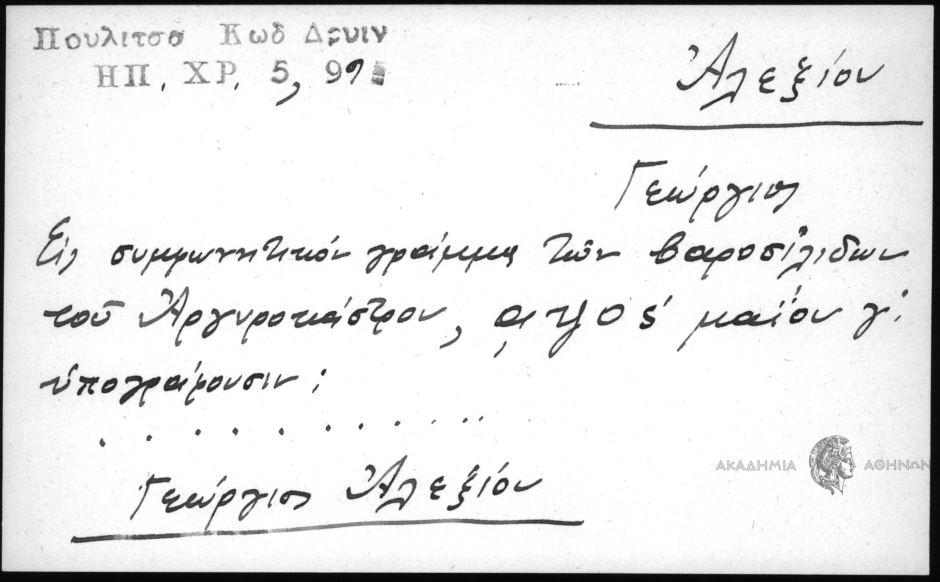 Πουλιτσα Κωδ Δρυιν
ΗΠ. ΧΡ. 5, 97
Ἀλεξίου
Γεώργιος
Εἰς συμφωνητικόν γράμμα τῶν βαροσιλιδων
τοῦ Ἀργυροκάστρου, ͵αψος΄ μαΐου γ΄.
ὑπογράφουσιν :
. . . . . . . . . . .
Γεώργιος Ἀλεξίου
ΑΚΑΔΗΜΙΑ ΑΘΗΝΩΝ